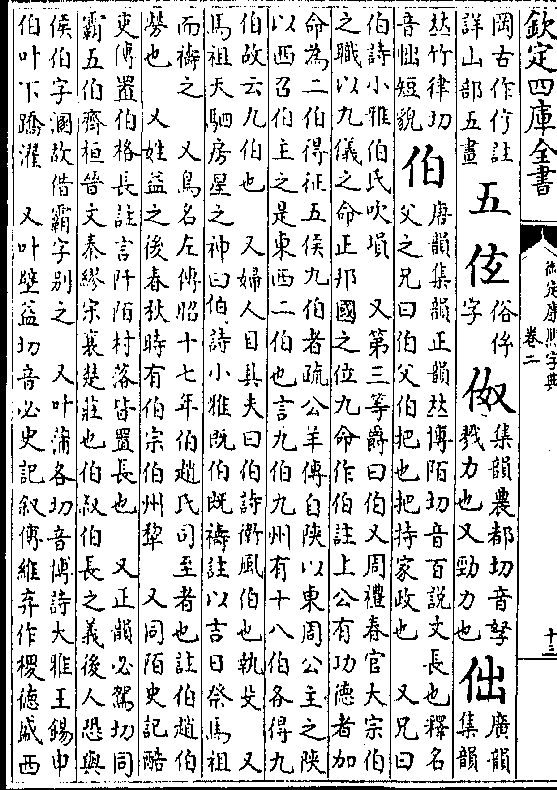 欽定四庫全書
御定康熙字典
卷二
十三
岡古作㣔註
詳山部五畫
五
佐
俗侔
字
㑄
集韻農都切音孥
戮力也又勁力也
㑁
廣韻
集韻
𠀤竹律切
音怞短貌
伯
唐韻集韻正韻𠀤博陌切音百説文長也釋名
父之兄曰伯父伯把也把持家政也 又兄曰
伯詩小雅伯氏吹塤 又第三等爵曰伯又周禮春官大宗伯
之職以九儀之命正邦國之位九命作伯註上公有功徳者加
命為二伯得征五侯九伯者疏公羊傳自陜以東周公主之陜
以西召伯主之是東西二伯也言九伯九州有十八伯各得九
伯故云九伯也 又婦人目其夫曰伯詩衛風伯也執殳 又
馬祖天駟房星之神曰伯詩小雅既伯既禱註以吉日祭馬祖
而禱之 又鳥名左傳昭十七年伯趙氏司至者也註伯趙伯
勞也 又姓益之後春秋時有伯宗伯州犂 又同陌史記酷
吏傳置伯格長註言阡陌村落皆置長也 又正韻必駕切同
霸五伯齊桓晉文秦繆宋襄楚莊也伯取伯長之義後人恐與
侯伯字溷故借霸字别之 又叶蒲各切音博詩大雅王錫申
伯叶下蹻濯 又叶壁益切音必史記叙傳維弃作稷徳盛西